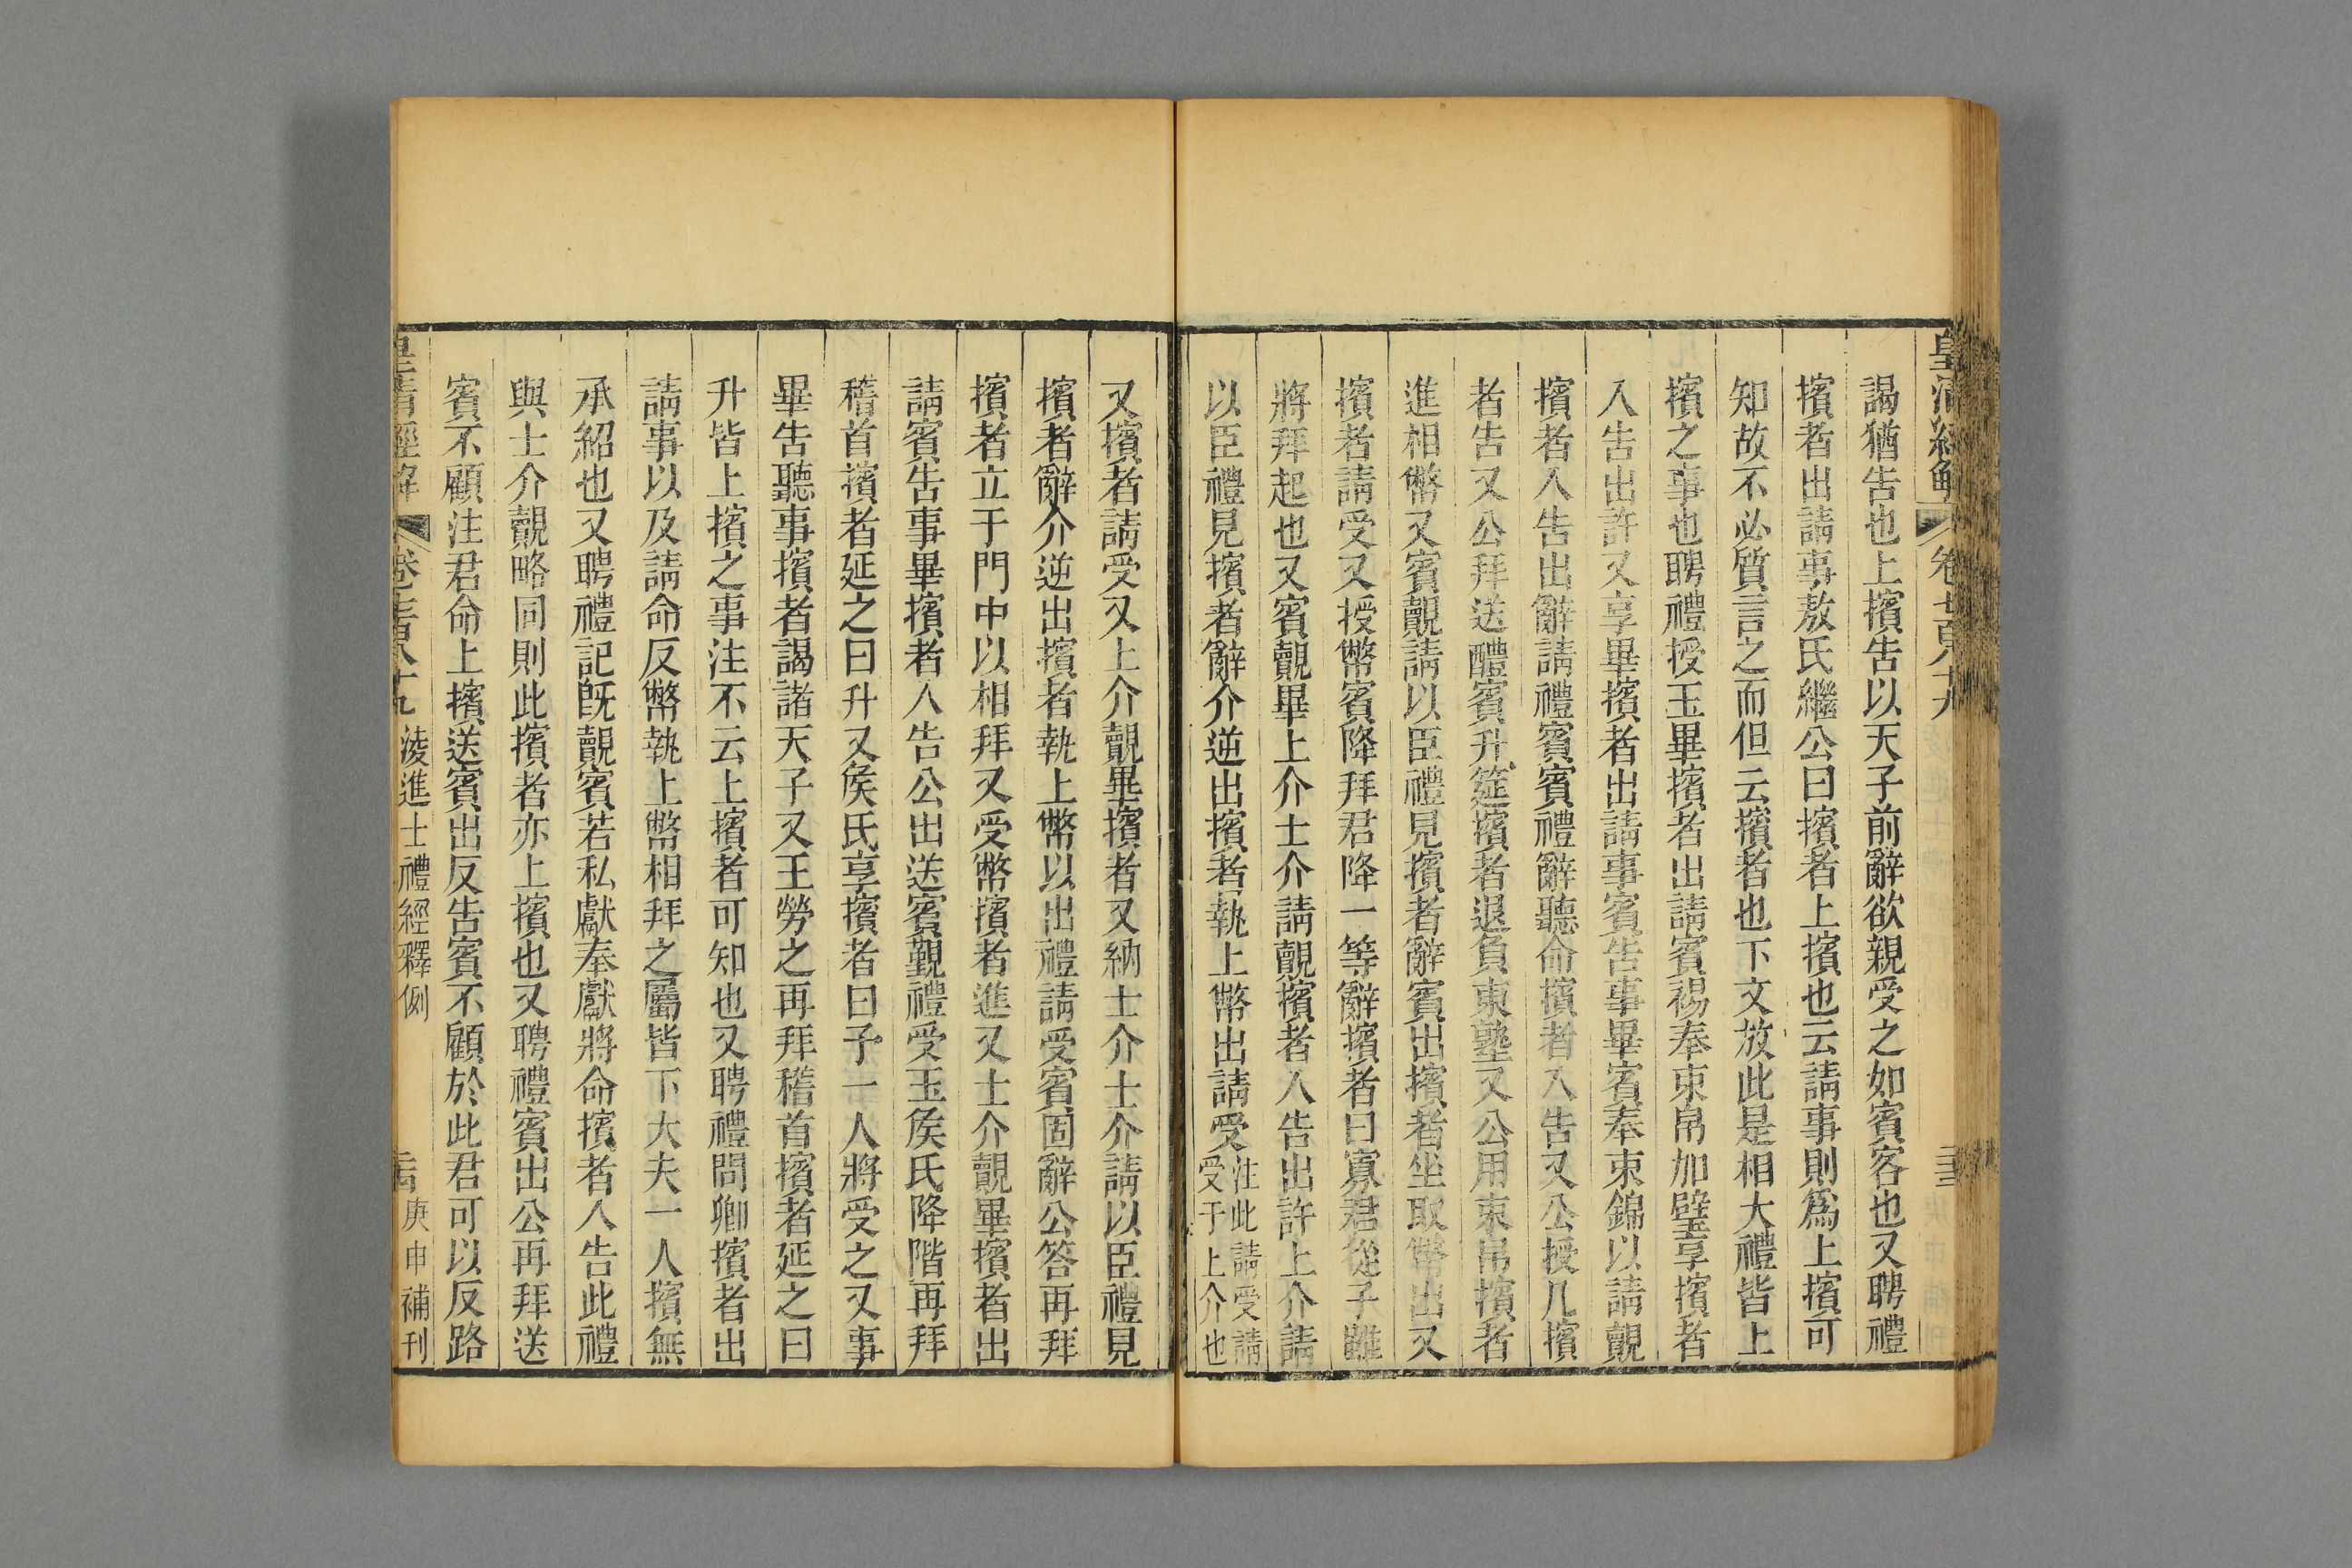 皇清經解 卷七百八十九
謁猶告也上擯告以天子前辭欲親受之如賓客也又聘禮
擯者出請事敖氏繼公曰擯者上擯也云請事則爲上擯可
知故不必質言之而但云擯者也下文放此是相大禮皆上
擯之事也聘禮授玉畢擯者出請賓裼奉束帛加璧享擯者
入告出許又享畢擯者出請事賓告事畢賓奉束錦以請覿
擯者入告出辭請禮賓賓禮辭聽命擯者入告又公授几擯
者告又公拜送醴賓升筵擯者退負東塾又公用束帛擯者
進相幣又賓覿請以臣禮見擯者辭賓出擯者坐取幣出又
擯者請受又授幣賓降拜君降一等辭擯者曰寡君從子雖
將拜起也又賓覿畢上介士介請覿擯者入告出許上介請
以臣禮見擯者辭介逆出擯者執上幣出請受注此請受請受于上介也
又擯者請受又上介覿畢擯者又納士介士介請以臣禮見
擯者辭介逆出擯者執上幣以出禮請受賓固辭公答再拜
擯者立于門中以相拜又受幣擯者進又士介覿畢擯者出
請賓告事畢擯者入告公出送賓覲禮受玉矦氏降階再拜
稽首擯者延之曰升又矦氏享擯者曰予一人將受之又事
畢告聽事擯者謁諸天子又王勞之再拜稽首擯者延之曰
升皆上擯之事注不云上擯者可知也又聘禮問卿擯者出
請事以及請命反幣執上幣相拜之屬皆下大夫一人擯無
承紹也又聘禮記旣覿賓若私獻奉獻將命擯者入告此禮
與士介覿略同則此擯者亦上擯也又聘禮賓出公再拜送
賓不顧注君命上擯送賓出反告賓不顧於此君可以反路
皇清經解 卷七百八十九 淩進士禮經釋例 庚申補刊